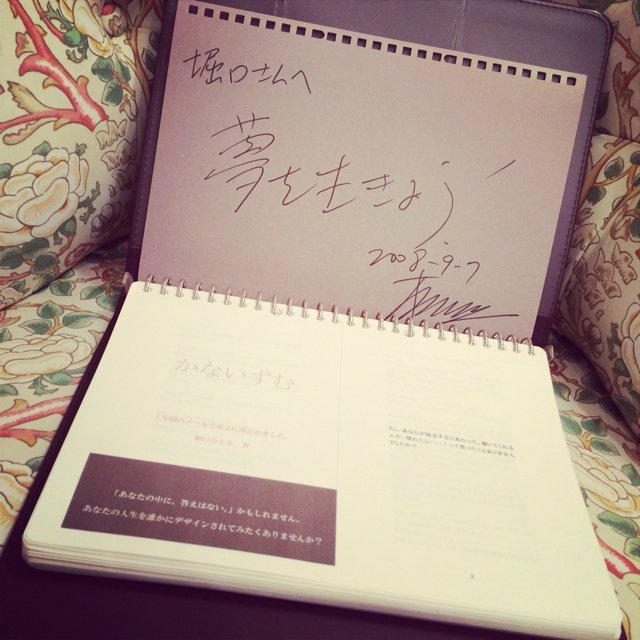 堀口さんへ
夢を生きよう！
2008-9-7
かないずむ
「お前のメールで独立に導かれました。
堀口ひとみ 著
「あなたの中に、答えはない。」かもしれません。
あなたの人生を誰かにデザインされてみたくありませんか？
もし、あなたが独立するにあたって、導いてくれる
人が、現れたら・・・！って思ったことありません
でしたか？